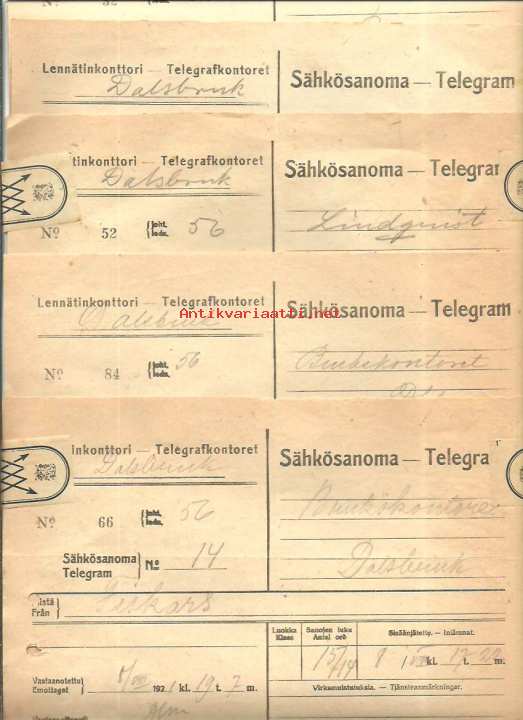 Lennätinkonttori — Telegrafkontoret
Dalsbruk
Sähkösanoma — Telegram
tinkonttori — Telegrafkontoret
Dalsbruk
Sähkösanoma — Telegra
Nº 52 joht. leda. 56
Lindqvist
Lennätinkonttori — Telegrafkontoret
Dalsbruk
Sähkösanoma — Telegram
Antikvariaatti.net
Nº 84 joht. leda. 56
Brukskontoret
inkonttori — Telegrafkontoret
Dalsbruk
Sähkösanoma — Telegra
Nº 66 joht. leda. 56
Brukskontoret
Dalsbruk
Sähkösanoma
Telegram
Nº 14
istä
Från
Fiskars
Luokka
Klass
Sanojen luku
Antal ord
Sisäänjätetty. — Inlämnat.
15/14
8/VIII kl. 17.20 m.
Vastaanotettu
Emottaget
8/VIII 1921 kl. 19 t. 7 m.
Virkamuistutuksia. — Tjänsteanmärkningar.